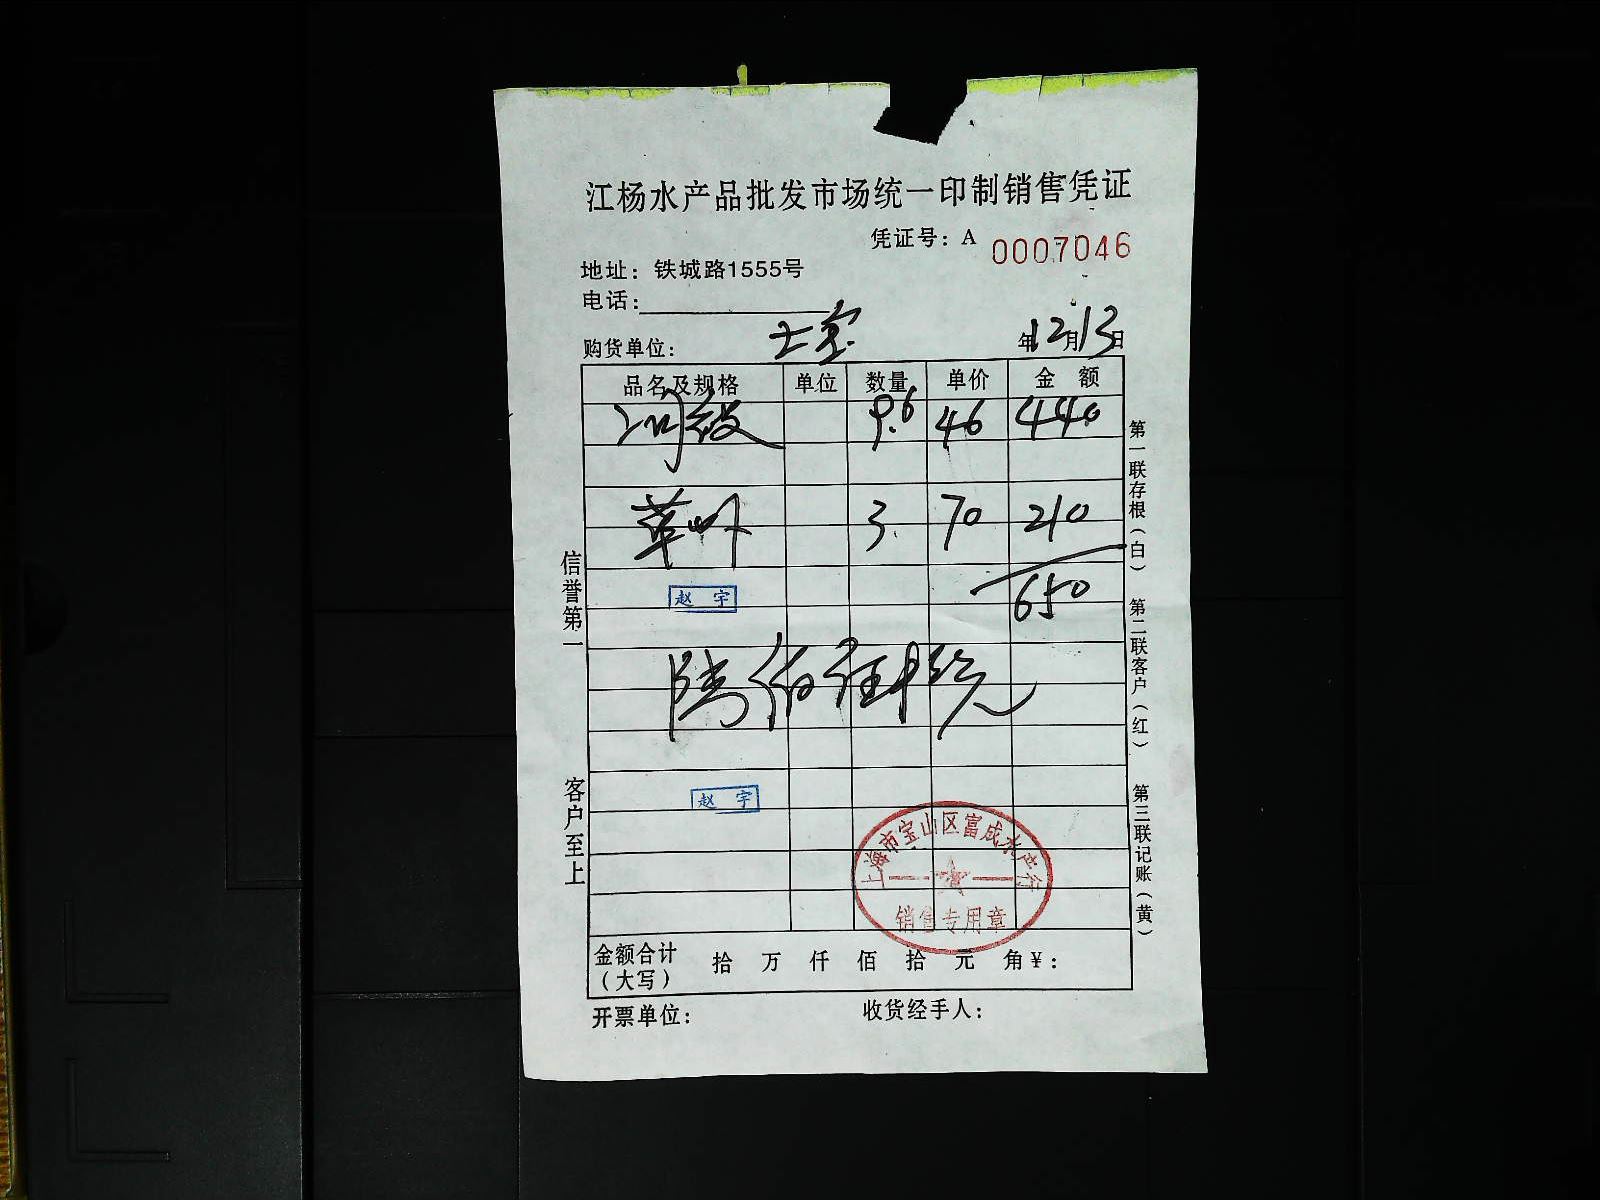 江杨水产品批发市场统一印制销售凭证
凭证号：A 0007046
地址：铁城路1555号
电话：
购货单位： 士宝 年12月13日
品名及规格 单位 数量 单价 金额
9.6 46 440
草虾 3. 70 210
650
赵宇
陆佰伍十元
赵宇
上海市宝山区富成水产行
销售专用章
金额合计（大写） 拾 万 仟 佰 拾 元 角 ¥：
开票单位： 收货经手人：
信誉第一
客户至上
第一联存根（白）
第二联客户（红）
第三联记账（黄）